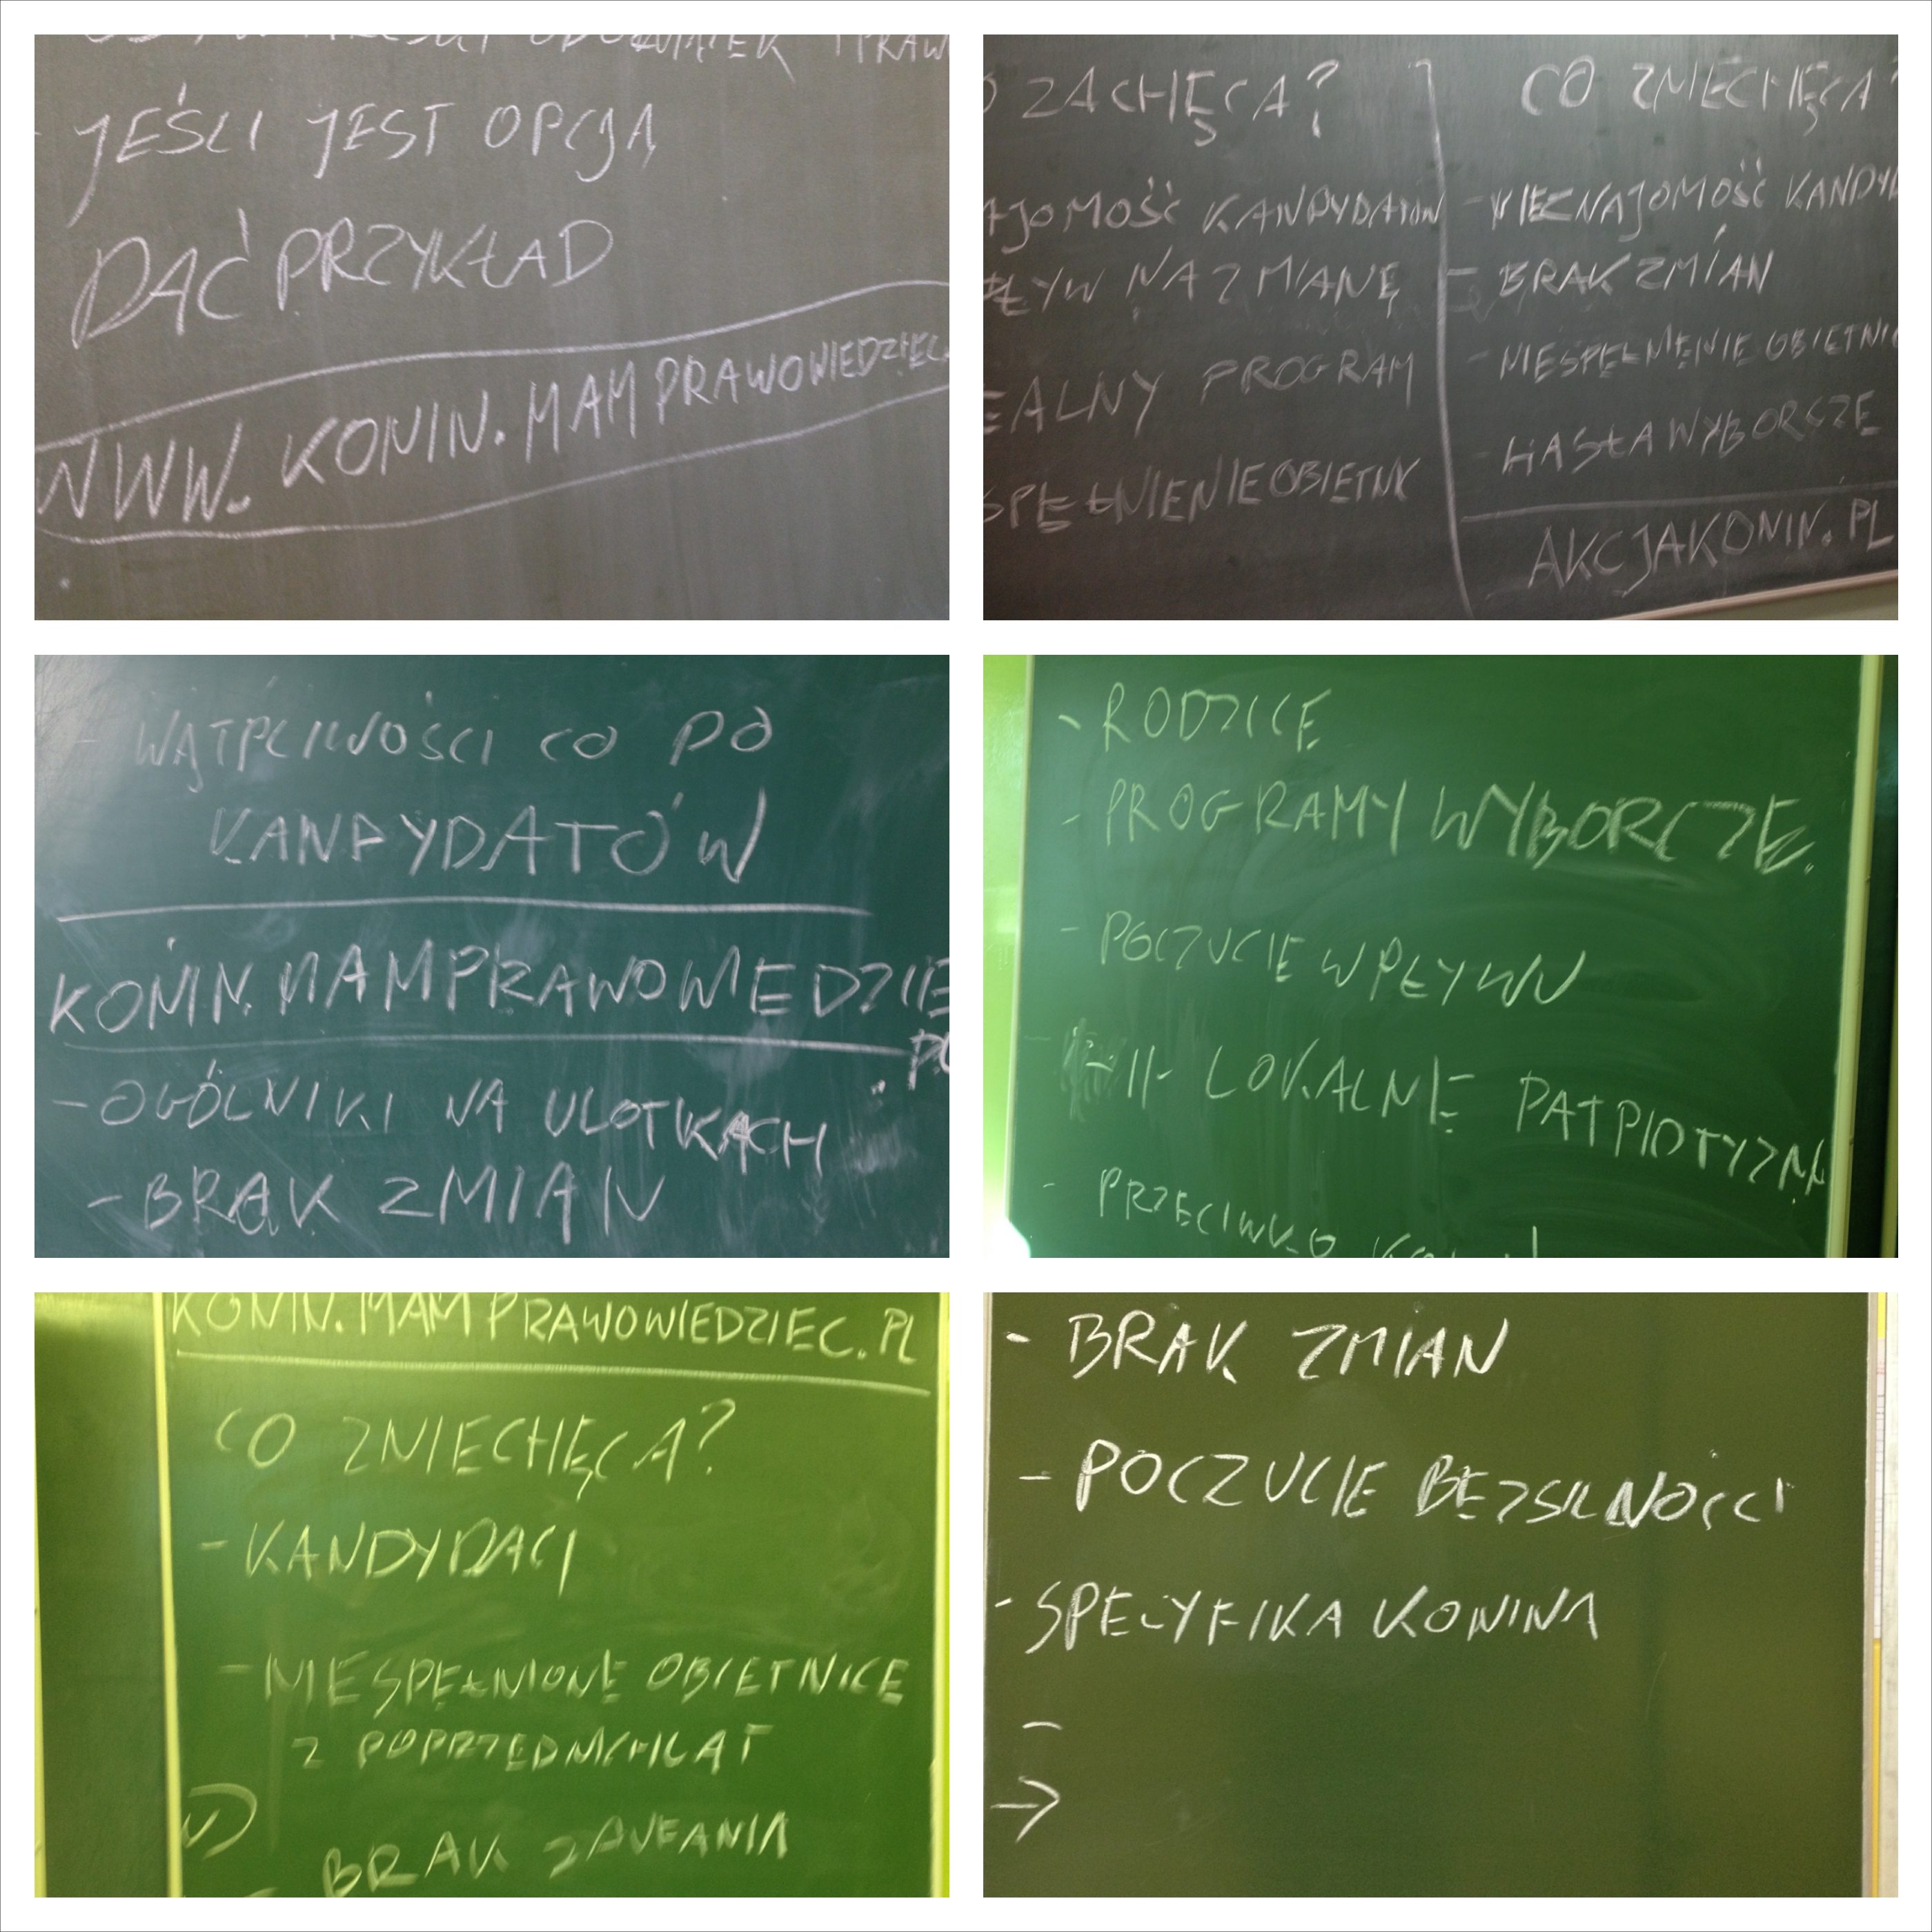 JEŚLI JEST OPCJA
DAĆ PRZYKŁAD
WWW. KONIN. MAMPRAWOWIEDZIEC.
O ZACHĘCA?
AJOMOŚĆ KANDYDATÓW
ŁYW NA ZMIANĘ
EALNY PROGRAM
SPEŁNIENIE OBIETNIC
CO ZNIECHĘCA?
- NIEZNAJOMOŚĆ KANDYD
- BRAK ZMIAN
- NIESPEŁNIENIE OBIETNIC
- HASŁA WYBORCZE
AKCJAKONIN.PL
- WĄTPLIWOŚCI CO DO
KANDYDATÓW
KONIN.MAMPRAWOWIEDZIE
.PL
- OGÓLNIKI NA ULOTKACH
- BRAK ZMIAN
- RODZICE
- PROGRAMY WYBORCZE
- POCZUCIE WPŁYWU
-||- LOKALNE PATRIOTYZM
- PRZECIWKO
KONIN.MAMPRAWOWIEDZIEC.PL
CO ZNIECHĘCA?
- KANDYDACI
- NIESPEŁNIONE OBIETNICE
Z POPRZEDNICH LAT
BRAK ZAUFANIA
- BRAK ZMIAN
- POCZUCIE BEZSILNOŚCI
- SPECYFIKA KONINA
-
→